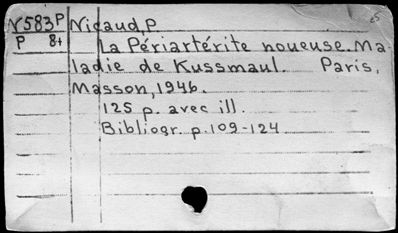 N583P Nicaud, P
P 84 La Périartérite noueuse. Ma-
ladie de Kussmaul. Paris,
Masson, 1946.
125 p. avec ill.
Bibliogr. p. 109-124